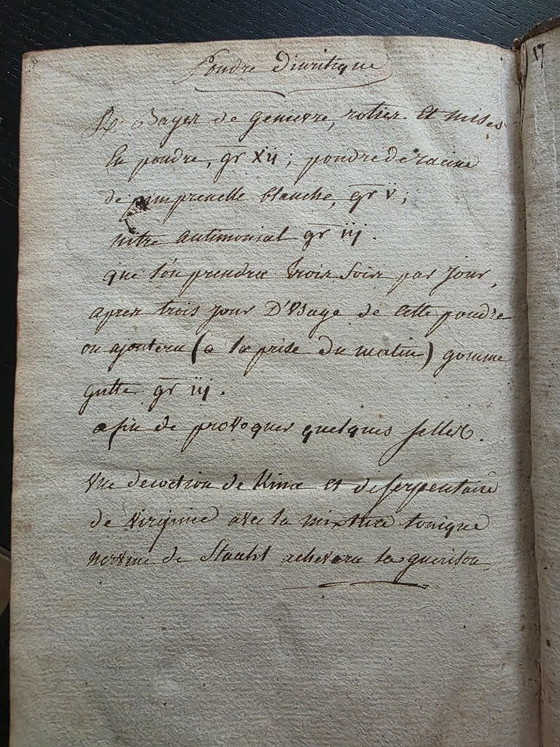 Poudre diuritique
℞ Bayes de genievre, roties et mises
En poudre, gr xij; poudre de racine
de pimprenelle blanche, gr v;
nitre antimonial gr iij.
que l'on prendra trois fois par jour,
apres trois jour D'Usage de cette poudre
on ajoutera (a la prise du matin) gomme
gutte gr iij.
afin de provoquer quelques selles.
Une decoction de Kina et de serpentaire
de virginie avec la mixture tonique
nervine de Staahl achevera la guerison
17